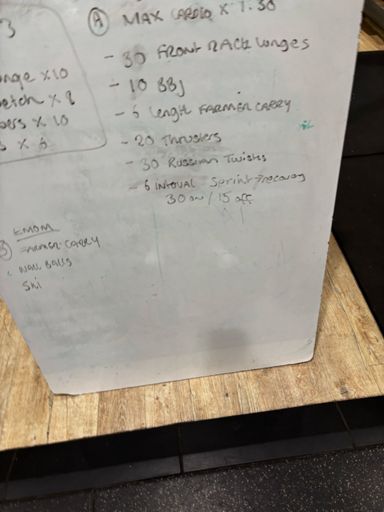 3
nge x10
etch x 8
x 10
x 8
A MAX CARDIO x 1:30
- 30 FRONT RACK lunges
- 10 BBJ
- 6 length FARMER CARRY
- 20 Thrusters
- 30 Russian Twists
- 6 INTERVAL Sprint + recovery
30 on / 15 off
EMOM
FARMER CARRY
WALL BALLS
SKI